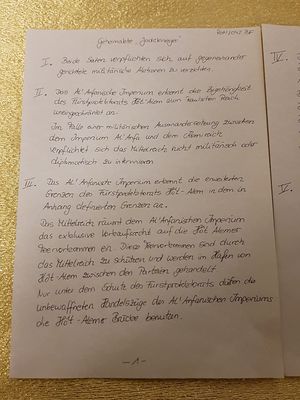 Geheimakte "Jadeknieger"
I. Beide Seiten verpflichten sich, auf gegeneinander
gerichtete militärische Aktionen zu verzichten.
II. Das Al'Anfanische Imperium erkennt die Zugehörigkeit
des Fürstprotektorats Hôt-Alem zum Neuen Reich
uneingeschränkt an.
Im Falle einer militärischen Auseinandersetzung zwischen
dem Imperium Al'Anfa und dem
verpflichtet sich das Mittelreich nicht militärisch oder
diplomatisch zu intervenieren
III. Das Al'Anfanische Imperium erkennt die erweiterten
Grenzen des Fürstprotektorats Hôt-Alem in dem im
Anhang definierten Grenzen an.
Das Mittelreich räumt dem Al'Anfanischen Imperium
das exklusive Vorkaufsrecht auf die Hôt Alemer
vorkommen ein. Diese vorkommen sind durch
das Mittelreich zu schützen und werden im Hafen von
Hôt-Alem zwischen den Parteien gehandelt.
Nur unter dem Schutz des Fürstprotektorats dürfen die
unbewaffneten Handelszüge des Al'Anfanischen Imperiums
die Hôt-Alemer Brücke benutzen.
-1-
IV.
V.